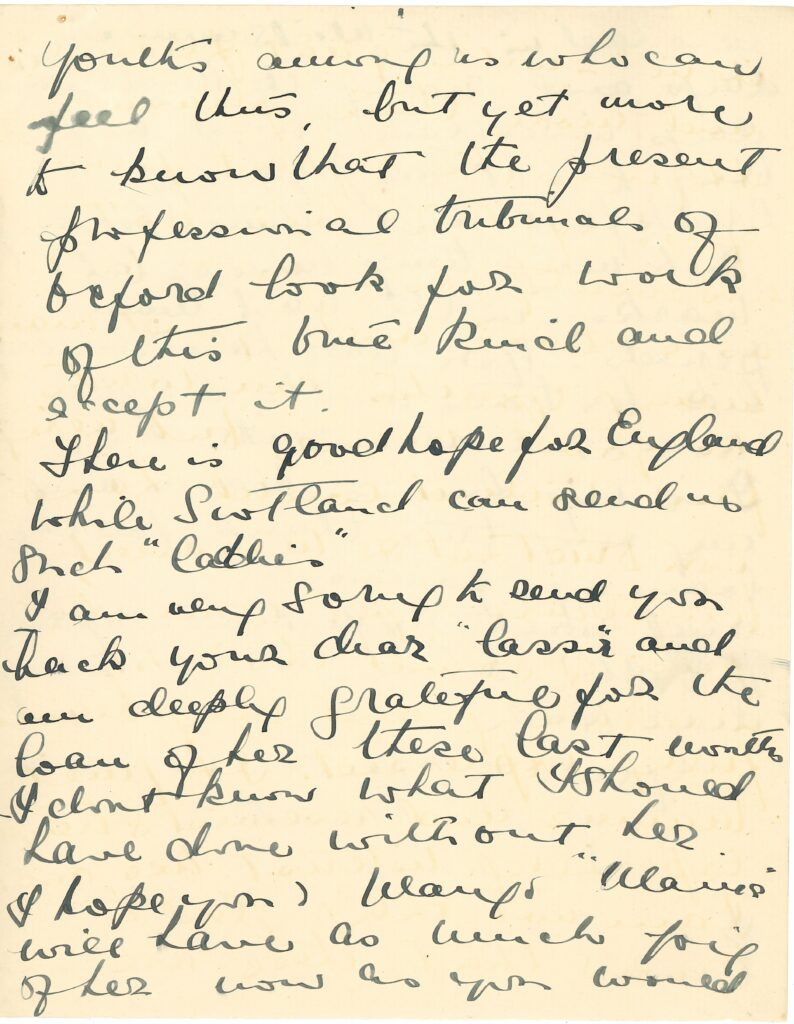 Youths among us who can
feel this, but yet more
to know that the present
professional tribunals of
Oxford look for work
of this true kind and
except it.
There is good hope for England
while Scotland can send us
such "laddies"
I am very sorry to send you
back your dear "lassie" and
am deeply grateful for the
loan of her these last months
I dont know what I should
have done without her
I hope you &
will have as much joy
of her now as you would